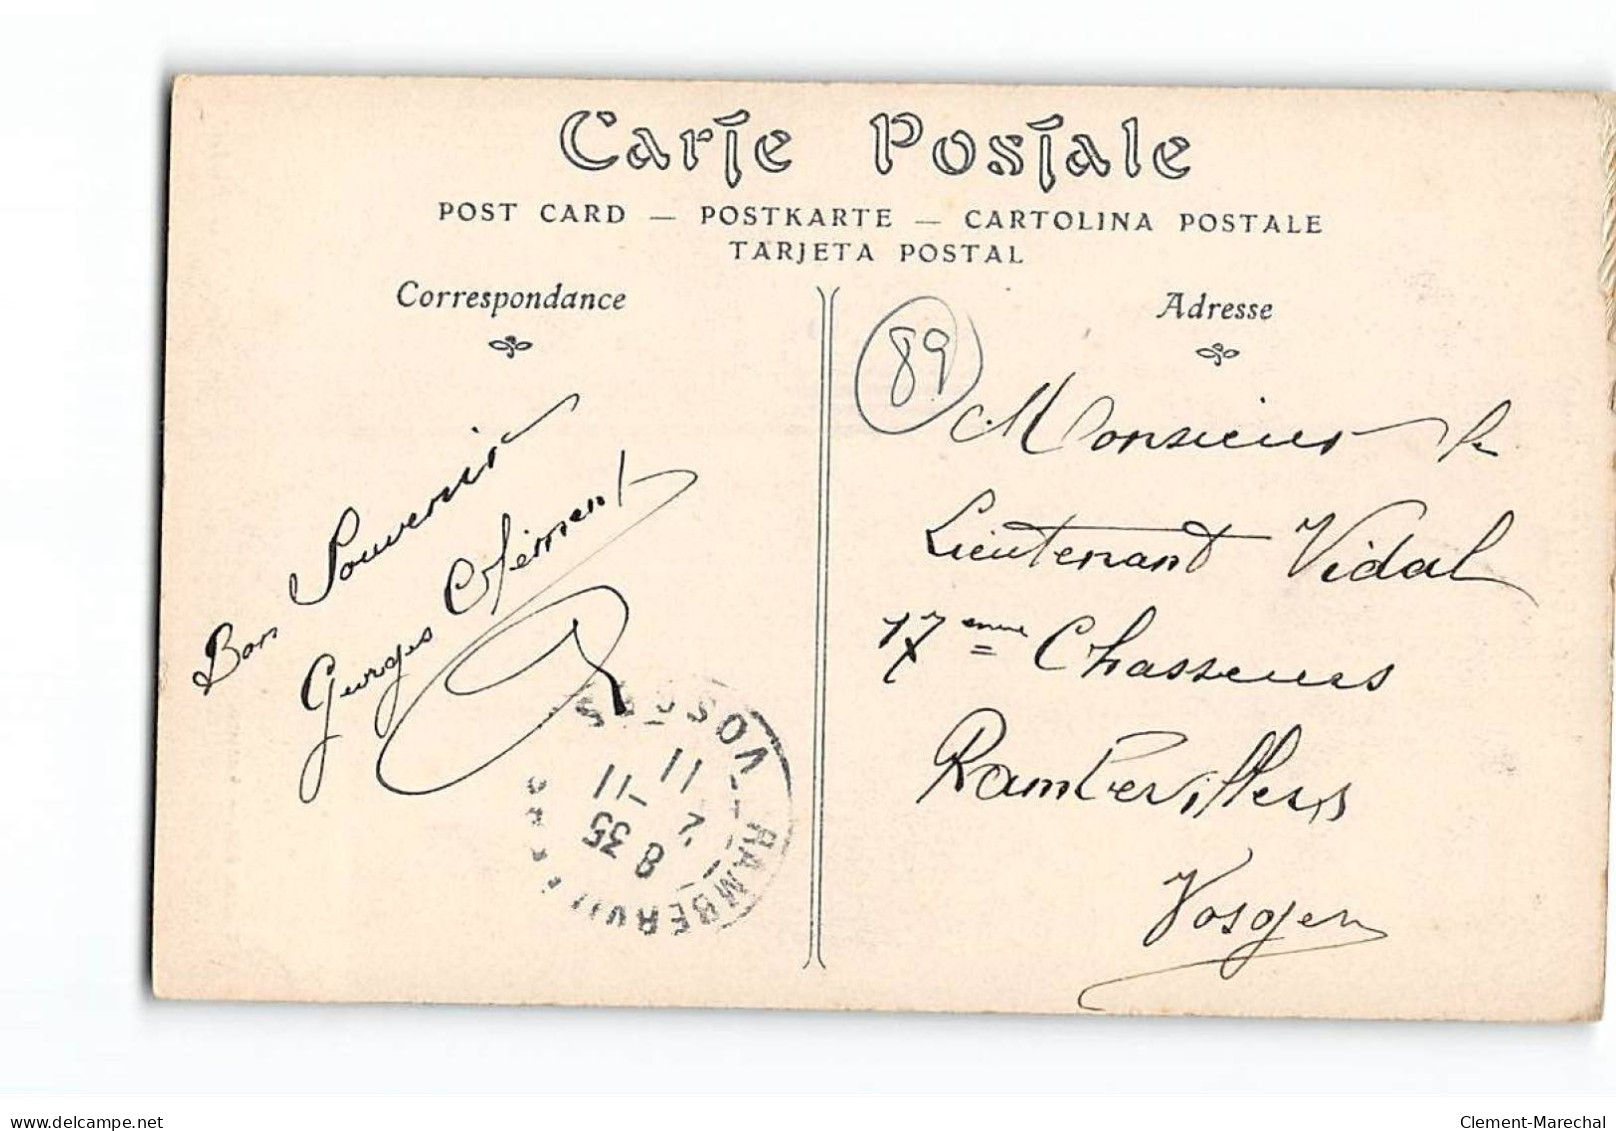 Carte Postale
POST CARD — POSTKARTE — CARTOLINA POSTALE
TARJETA POSTAL
Correspondance
Adresse
89
Bon Souvenir
Georges Clément
Monsieur le
Lieutenant Vidal
17eme Chasseurs
Rambervillers
Vosges
RAMBERVILLERS
VOSGES
8 35
7 -11
11
delcampe.net
Clement-Marechal